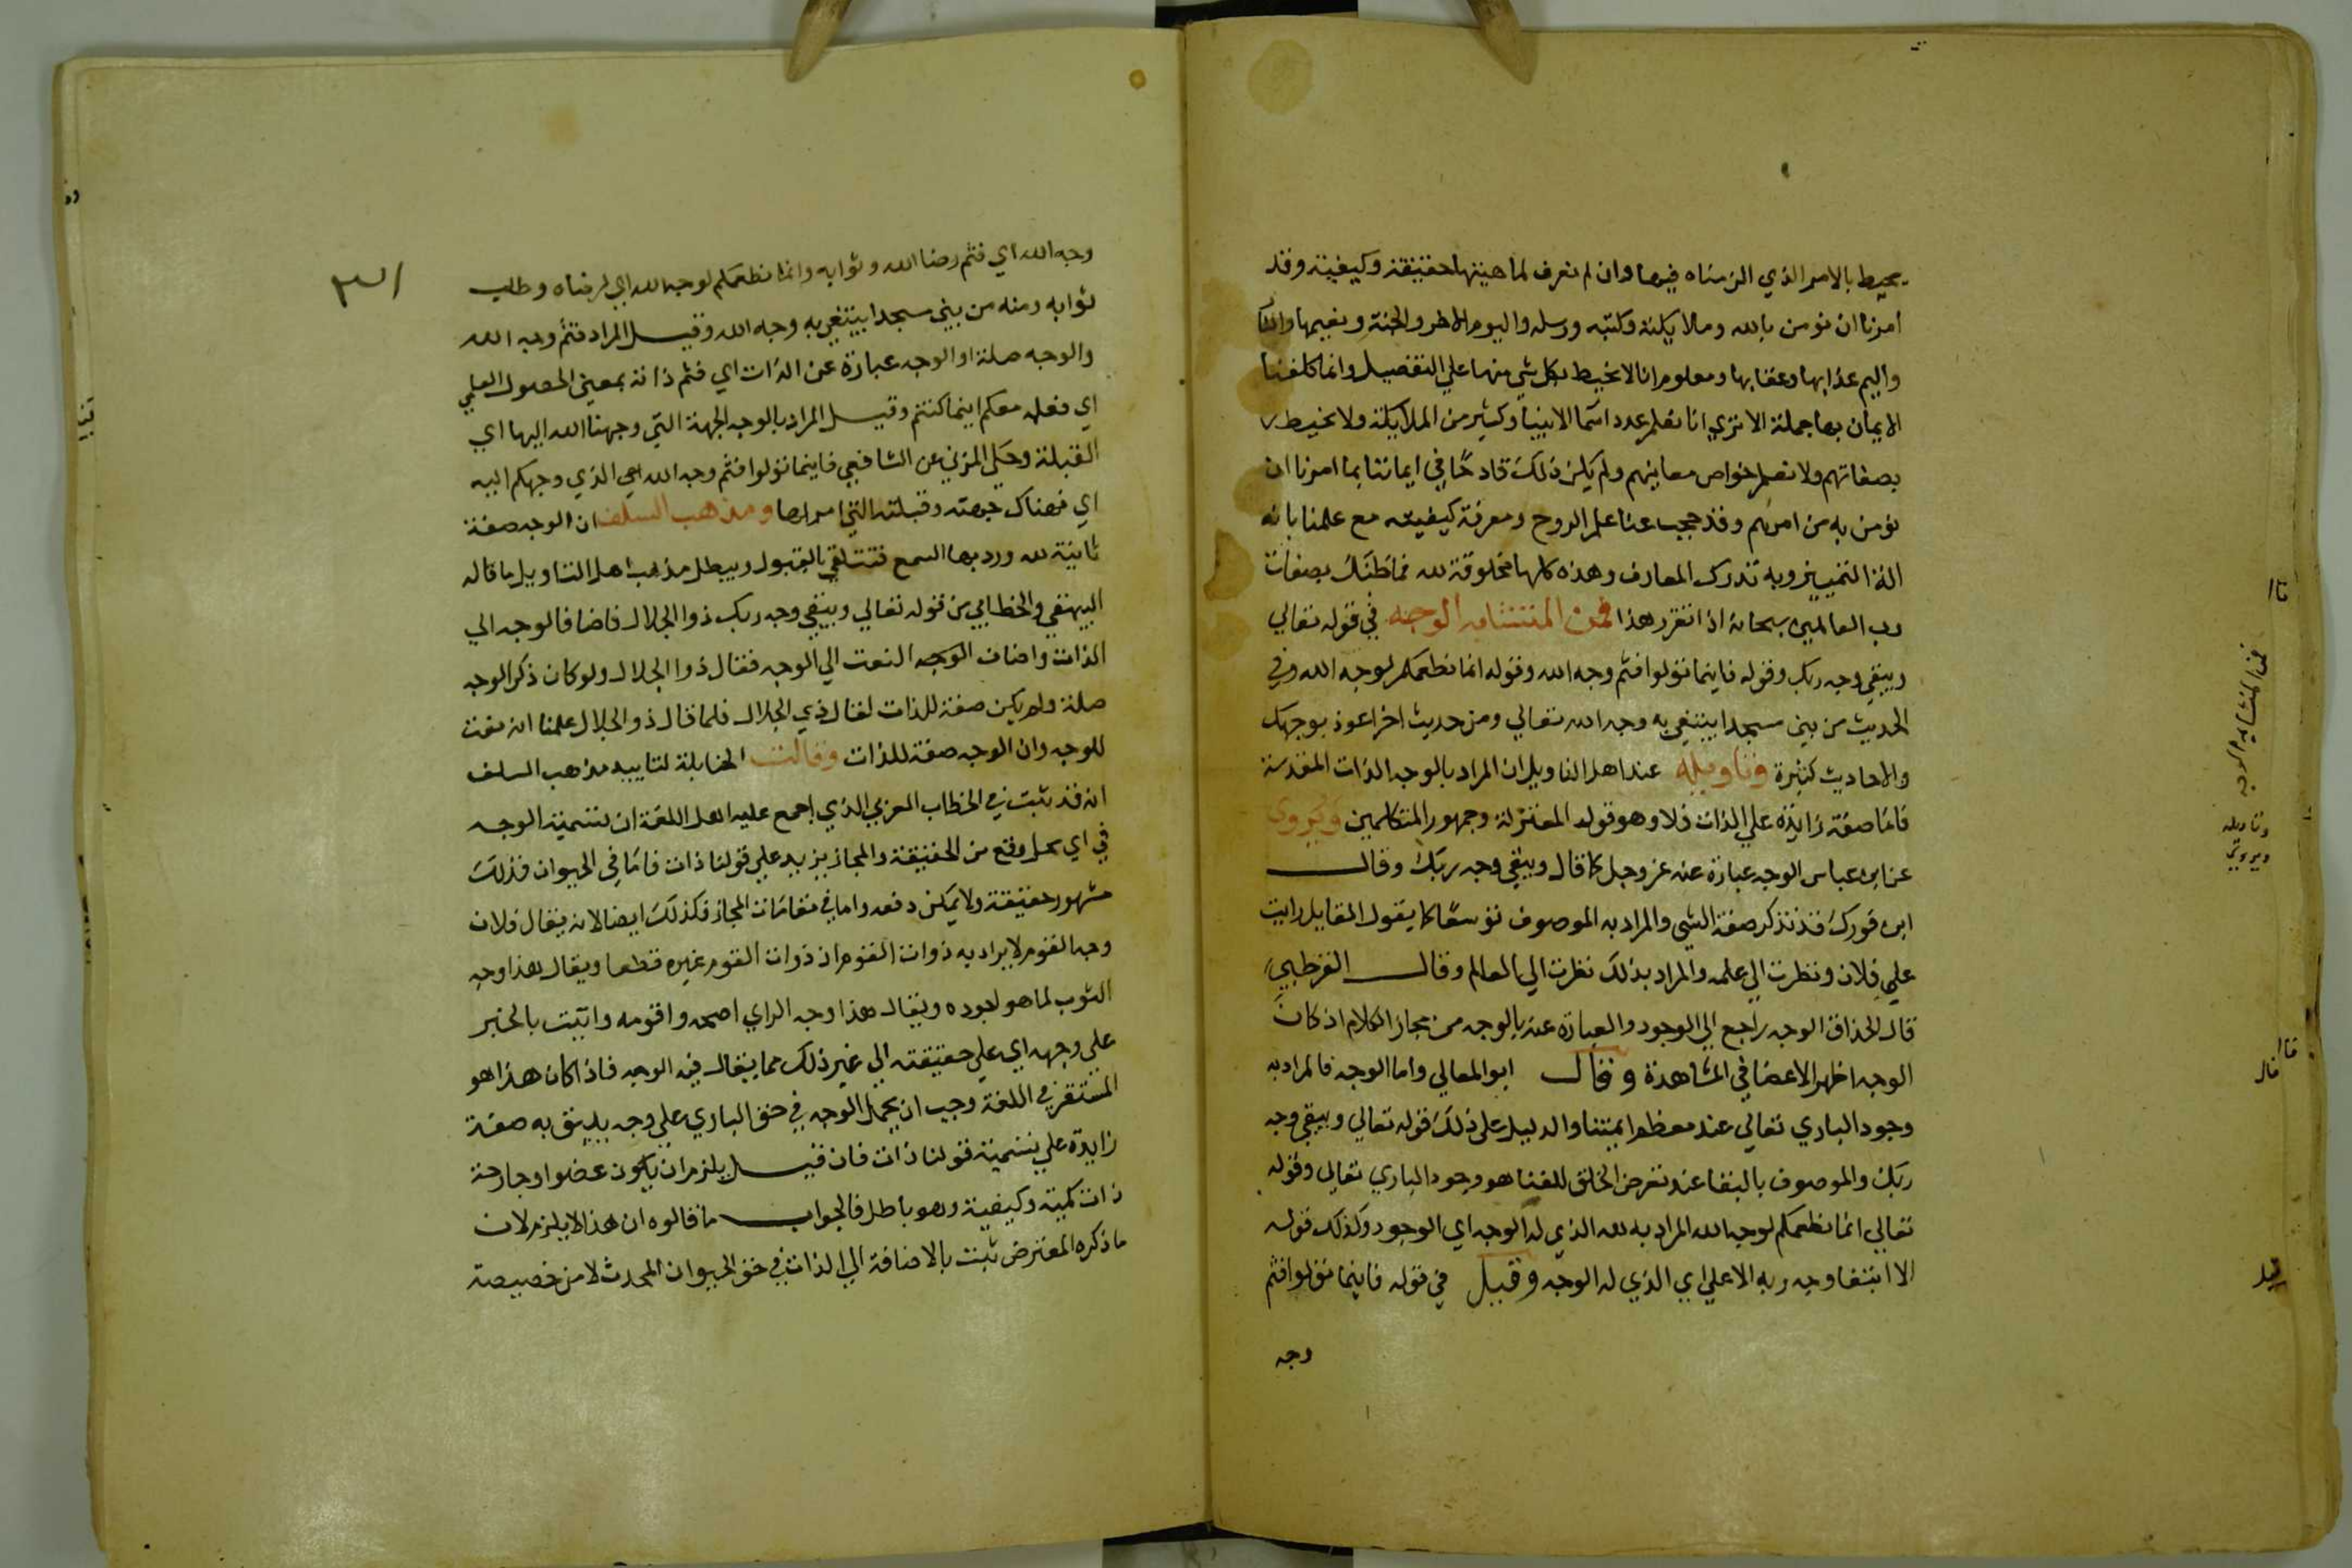 يحيط بالامر الذي الزمناه فيها وان لم نعرف لماهيتها حقيقة وكيفية وقد
امرنا ان نومن بالله وملايكته وكتبه ورسله واليوم الاخر والجنة ونعيمها والنار
واليم عذابها وعقابها ومعلوم انا لا نحيط بكل شي منها علي التفصيل وانما كلفنا
الايمان بها جملة الا تري انا نعلم عدد اسما الانبيا وكثير من الملايكة ولا نحيط
بصفاتهم ولا نعلم خواص معانيهم ولم يكن ذلك قادحًا في ايماننا بما امرنا ان
نومن به من امرهم وقد حجب عنا علم الروح ومعرفة كيفيته مع علمنا بانه
الة التمييز وبه تدرك المعارف وهذه كلها مخلوقة لله فما ظنك بصفات
رب العالمين سبحانه اذا تقرر هذا فمن المتشابه الوجه في قوله تعالي
ويبقي وجه ربك وقوله فاينما تولوا فثم وجه الله وقوله انما نطعمكم لوجه الله وفي
الحديث من بني مسجدا يبتغي به وجه الله تعالي ومن حديث اخر اعوذ بوجهك
والاحاديث كثيرة وتاويله عند اهل التاويل ان المراد بالوجه الذات المقدسة
فاما صفة زايدة علي الذات فلا وهو قول المعتزلة وجمهور المتكلمين ويروي
عن ابن عباس الوجه عبارة عنه عز وجل كما قال ويبقي وجه ربك وقال
ابن فورك قد تذكر صفة الشي والمراد به الموصوف توسعًا كما يقول القايل رايت
علم فلان ونظرت الي علمه والمراد بذلك نظرت الي العالم وقال القرطبي
قال الحذاق الوجه راجع الي الوجود والعبارة عنه بالوجه من مجاز الكلام اذ كان
الوجه اظهر الاعضا في المشاهدة وقال ابو المعالي واما الوجه فالمراد به
وجود الباري تعالي عند معظم ايمتنا والدليل علي ذلك قوله تعالي ويبقي وجه
ربك والموصوف بالبقا عند تعرض الخلق للفنا هو وجود الباري تعالي وقوله
تعالي انما نطعمكم لوجه الله المراد به لله الذي له الوجه اي الوجود وكذلك قوله
الا ابتغا وجه ربه الاعلي اي الذي له الوجه وقيل في قوله فاينما تولوا فثم
وجه
فمن المتشابه الوجه
وتاويله
ويروي
قال
قيل
٣١
وجه الله اي فثم رضا الله وثوابه وانما نطعمكم لوجه الله اي لرضاه وطلب
ثوابه ومنه من بني مسجدا يبتغي به وجه الله وقيل المراد فثم وجه الله
والوجه صلة او الوجه عبارة عن الذات اي فثم ذاته بمعني الحصول العلمي
اي فعلمه معكم اينما كنتم وقيل المراد بالوجه الجهة التي وجهنا الله اليها اي
القبلة وحكي المزني عن الشافعي فاينما تولوا فثم وجه الله اي الذي وجهكم اليه
اي فهناك جهته وقبلته التي امر بها ومذهب السلف ان الوجه صفة
ثابتة لله ورد بها السمع فتتلقي بالقبول ويبطل مذهب اهل التاويل ما قاله
البيهقي والخطابي من قوله تعالي ويبقي وجه ربك ذوا الجلال فاضاف الوجه الي
الذات واضاف الوجه النعت الي الوجه فقال ذوا الجلال ولو كان ذكر الوجه
صلة ولم يكن صفة للذات لقال ذي الجلال فلما قال ذو الجلال علمنا انه نعت
للوجه وان الوجه صفة للذات وقالت الحنابلة لتاييد مذهب السلف
انه قد ثبت في الخطاب العربي الذي اجمع عليه اهل اللغة ان تسمية الوجه
في اي محل وقع من الحقيقة والمجاز يزيد علي قولنا ذات فاما في الحيوان فذلك
مشهور حقيقة ولا يمكن دفعه واما في مقامات المجاز فكذلك ايضا لانه يقال فلان
وجه القوم لا يراد به ذوات القوم اذ ذوات القوم غيره قطعا ويقال هذا وجه
الثوب لما هو اجوده ويقال هذا وجه الراي اصحه واقومه واتيت بالخبر
علي وجهه اي علي حقيقته الي غير ذلك مما يقال فيه الوجه فاذا كان هذا هو
المستقر في اللغة وجب ان يحمل الوجه في حق الباري علي وجه يليق به صفة
زايدة علي تسمية قولنا ذات فان قيل يلزم ان يكون عضوا وجارحة
ذات كمية وكيفية وهو باطل فالجواب ما قالوه ان هذا لا يلزم لان
ما ذكره المعترض ثبت بالاضافة الي الذات في حق الحيوان المحدث لا من خصيصة